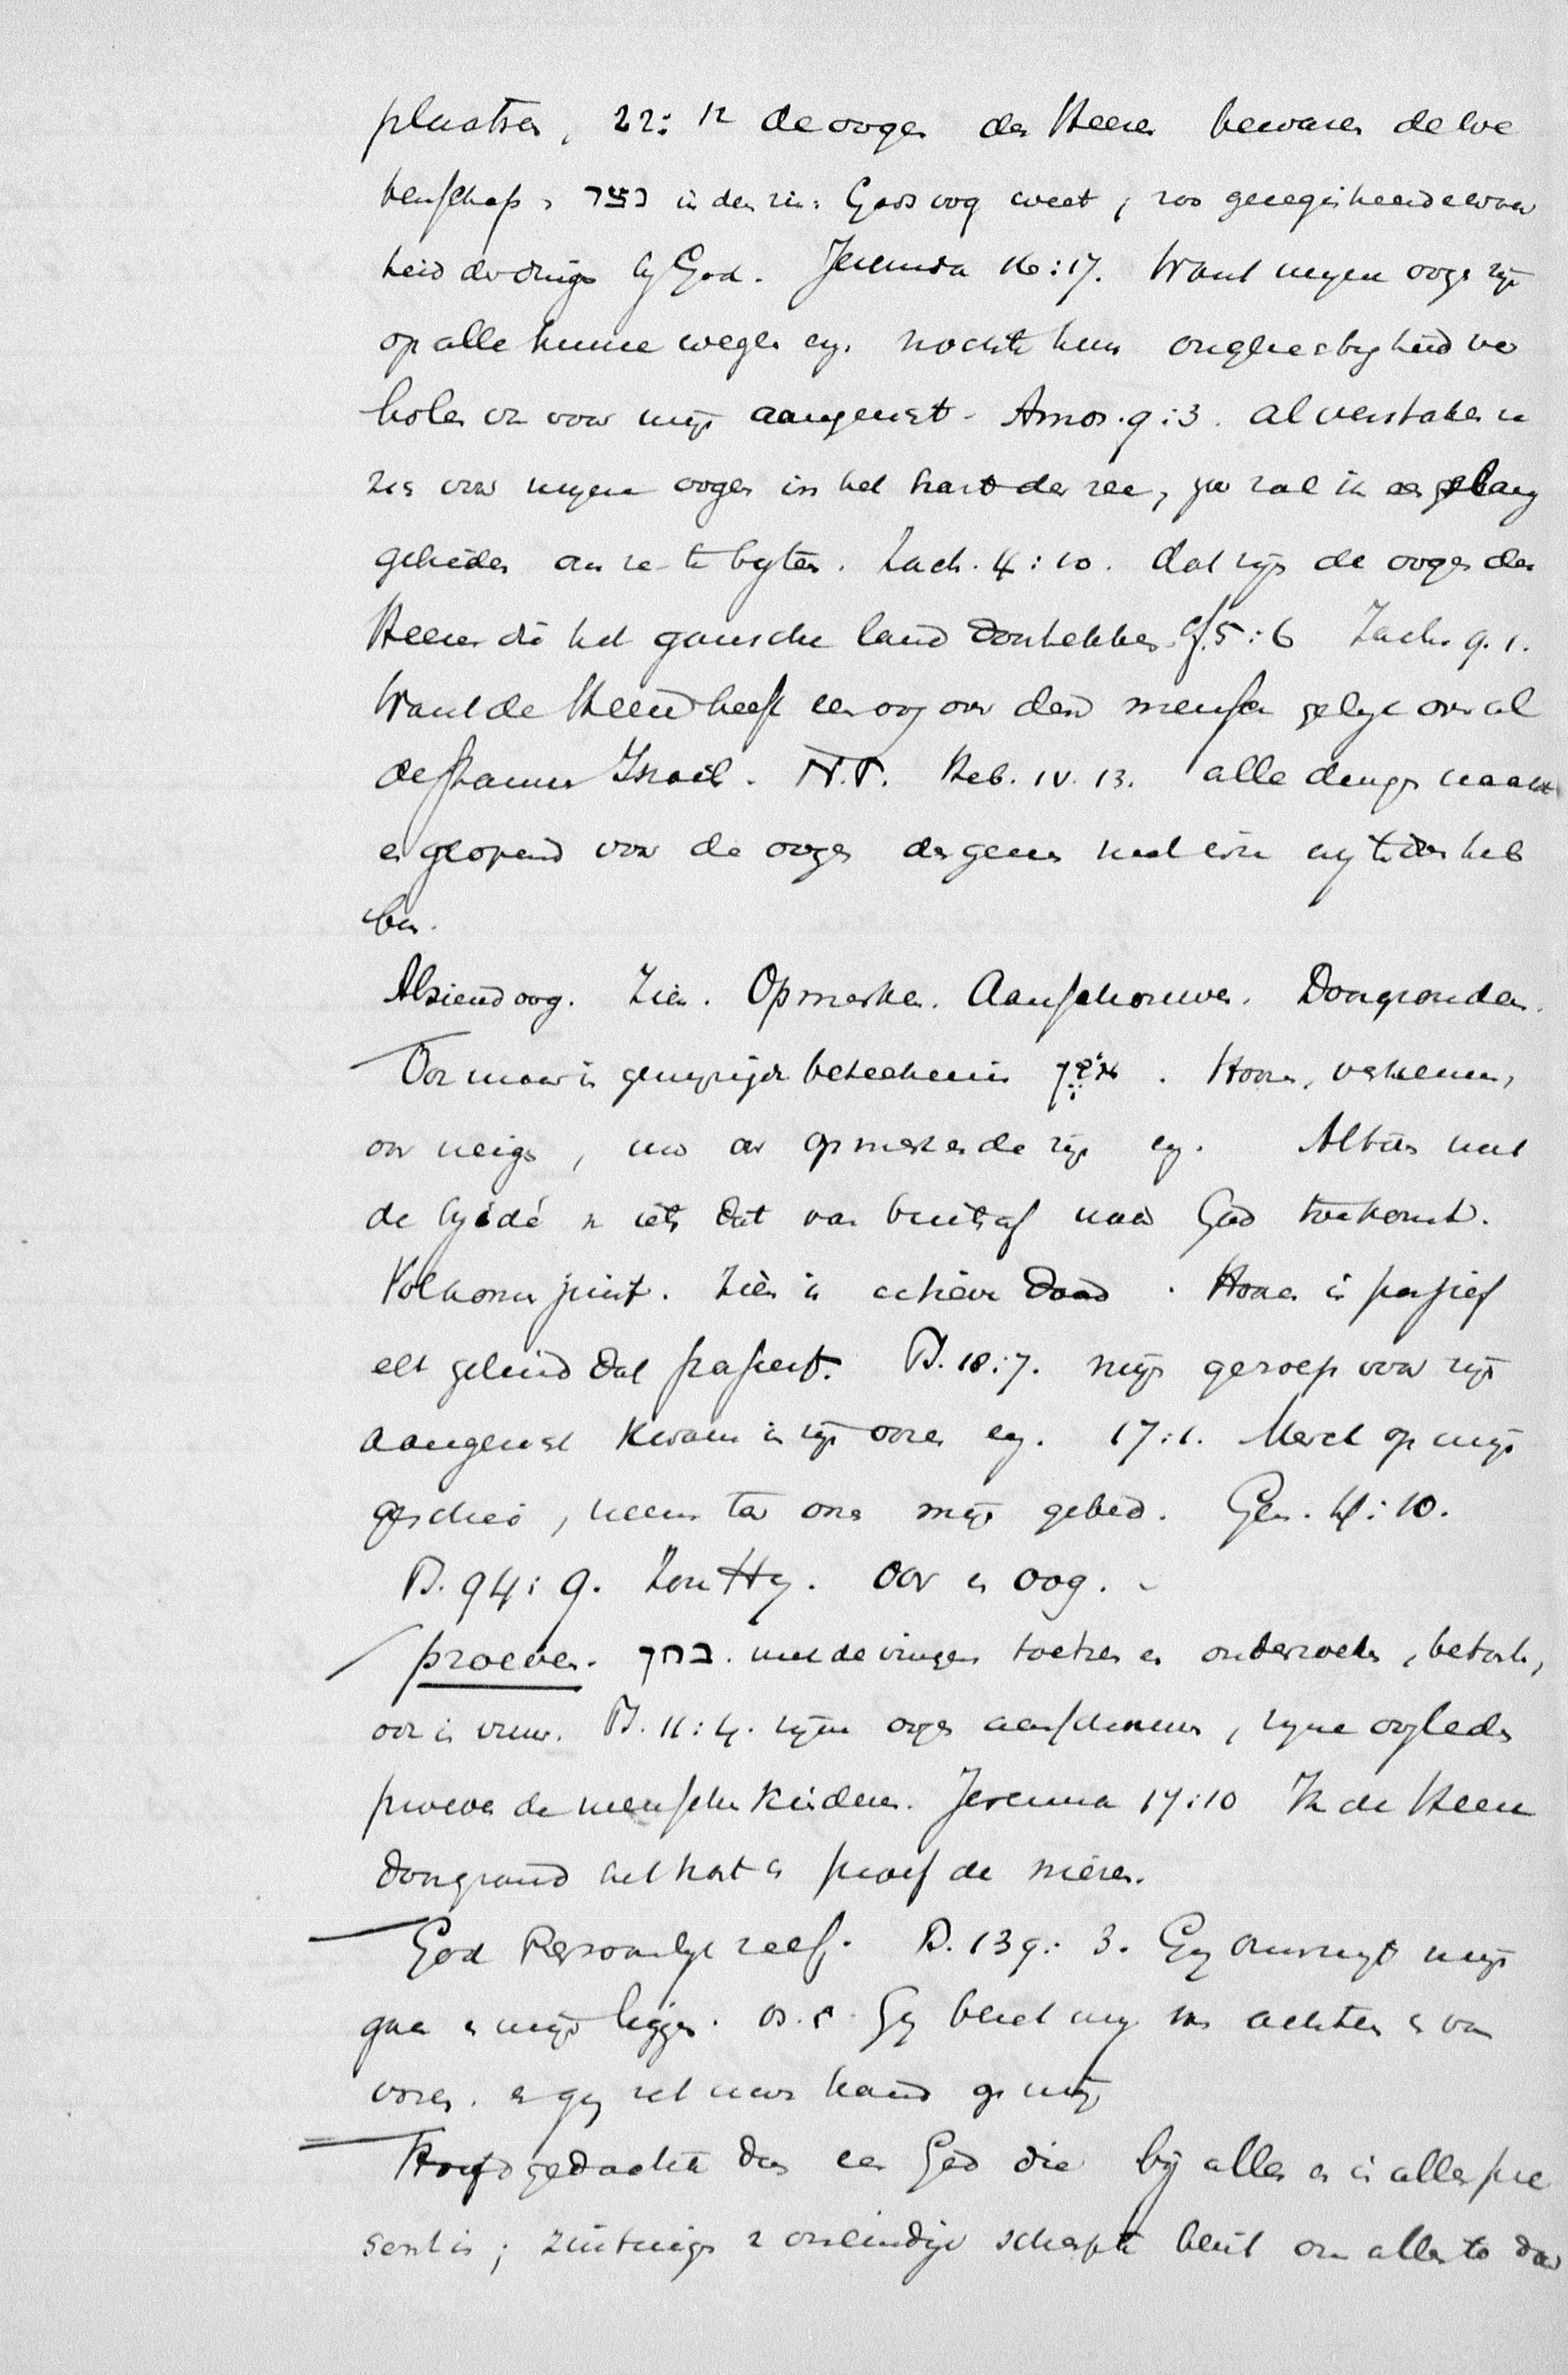 plaatsen, 22:12 de oogen des Heeren bewaren de we
tenschap, נצר in den zin: Gods oog weet, zoo
heid der dingen by God. Jeremia 16:17. Want mijne oogen zijn
op alle hunne wegen enz. noch is hun ongerechtigheid ver
holen van voor mijn aangezicht. Amos. 9:3. al verstaken ze
zich voor mijne oogen in het hart der zee, zoo zal ik een slang
gebieden om ze te byten. Zach. 4:10. dat zijn de oogen des
Heeren die het gansche land doortrekken. Cf. 5:6 Zach. 9.1.
Want de Heere heeft een oog over den mensch gelyk over al
de stammen Israëls. N.T. Heb. IV. 13. alle dingen naakt
en geopend voor de oogen desgenen met wien wij te doen heb
ben.
Alziend oog. Zien. Opmerken. Aanschouwen. Doorgronden.
Oor maar in gewyzigde beteekenis אזן. Hooren, vernemen,
oor neigen, uw oor opmerkende zijn enz. Altoos met
de bijidé van iets dat van buitenaf naar God toekomt.
Volkomen juist. Zien is actieve daad. Hooren is passief
elk geluid dat passeert. Ps. 18:7. mijn geroep voor zijn
aangezicht kwam in zijn ooren enz. 17:1. Merk op mijn
geschrei, neem ter oore mijn gebed. Gen. 4:10.
Ps. 94:9. Zou Hy. Oor en oog.
proeven. בחן. met de vingers toetsen en onderzoeken, betast,
oor in vuur. Ps. 11:4. zyne oogen aanschouwen, zyne oogleden
proeven de menschen kinderen. Jeremia 17:10 Ik de Heere
doorgrond het hart en proef de nieren.
God Persoonlyk zelf. Ps. 139:3. Gy omringt mijn
gaan en mijn liggen. vs. 5. Gy bezet my van achter en van
voren. en gy zet uwe hand op mij
Hoofdgedachte dus een God die bij alles en in alles pre
sent is; zintuigen van oneindige scherpte bezit om alles te door